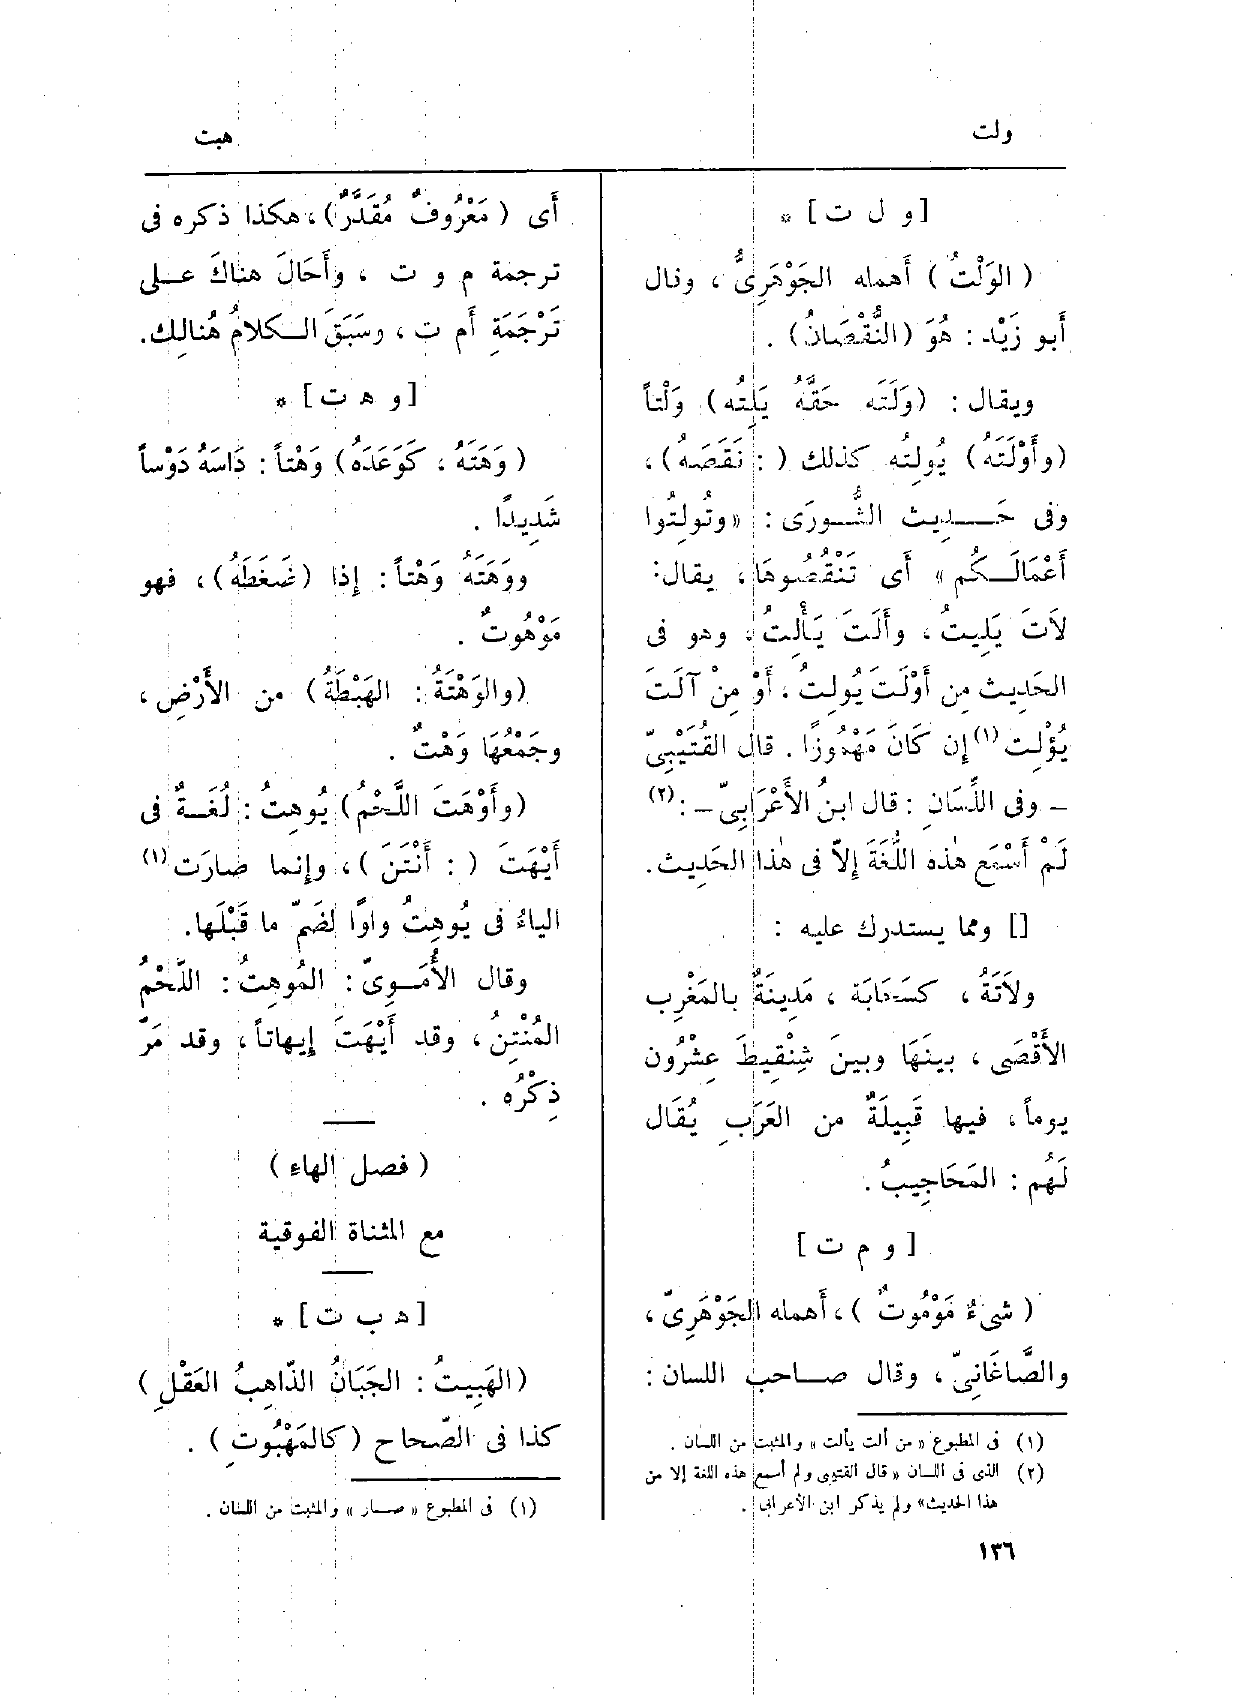 ولت
هبت
[و ل ت] *
( الوَلْتُ ) أهمله الجَوْهَرِىُّ ، وقال
أبو زَيْد : هُوَ (النُّقْصَانُ) .
ويقال : (وَلَتَه حَقَّهُ يَلِتُه) وَلْتاً
(وأَوْلَتَهُ) يُولِتُه كذلك ( : نَقَصَه) ،
وفى حَـديث الشُّـورَى : «وتُولِتُوا
أَعْمَالَـكُم » أى تَنْقُصُوهَا ، يقال:
لاَتَ يَلِيتُ ، وأَلَتَ يَأْلِتُ ، وهو فى
الحَدِيث مِن أَوْلَتَ يُولِتُ ، أَوْ مِنْ آلَتَ
يُؤْلِت(١) إِن كَانَ مَهْمُوزًا . قال القُتَيْبِىّ
ـ وفى اللِّسَانِ : قال ابنُ الأَعْرَابِىّ ـ :(٢)
لَمْ أَسْمَع هٰذه اللُّغَةَ إِلاّ فى هٰذا الحَدِيث.
[] ومما يستدرك عليه :
ولاَتَةُ ، كسَحَابَة ، مَدِينَةٌ بالمَغْرِب
الأَقْصَى ، بينَهَا وبينَ شِنْقِيطَ عِشْرُون
يوماً ، فيها قَبِيلَةٌ من العَرَبِ يُقَال
لَهُم : المَحَاجِيبُ .
[ و م ت ]
( شىءٌ مَوْمُوتٌ ) ، أهمله الجَوْهَرِىّ ،
والصَّاغَانِىّ ، وقال صـاحب اللسان :
(١) فى المطبوع « من ألت يألت » والمثبت من اللسان .
(٢) الذى فى اللسان « قال القتيبى ولم أسمع هذه اللغة إلا من
هذا الحديث» ولم يذكر ابن الأعرابى .
١٣٦
أَى ( مَعْرُوفٌ مُقَدَّرٌ) ، هكذا ذكره فى
ترجمة م و ت ، وأَحَالَ هناكَ عـلى
تَرْجَمَةِ أَم ت ، وسَبَقَ الـكلامُ هُنالِك.
[و هـ ت] *
( وَهَتَهُ ، كَوَعَدَهُ) وَهْتاً : دَاسَهُ دَوْساً
شَدِيدًا .
ووَهَتَهُ وَهْتاً : إِذا (ضَغَطَهُ) ، فهو
مَوْهُوتٌ .
(والوَهْتَةُ : الهَبْطَةُ) من الأَرْضِ ،
وجَمْعُهَا وَهْتٌ .
(وأَوْهَتَ اللَّحْمُ) يُوهِتُ : لُغَـةٌ فى
أَيْهَتَ ( : أَنْتَنَ ) ، وإِنما صارَت(١)
الياءُ فى يُوهِتُ واوًا لِضَمّ ما قَبْلَها.
وقال الأُمَـوِىّ : المُوهِتُ : اللَّحْمُ
المُنْتِنُ ، وقد أَيْهَتَ إِيهاتاً ، وقد مَرّ
ذِكْرُه .
( فصل الهاء )
مع المثناة الفوقية
[هـ ب ت] *
(الهَبِيتُ : الجَبَانُ الذّاهِبُ العَقْلِ )
كذا فى الصّحاح (كالمَهْبُوتِ ) .
(١) فى المطبوع « صـار » والمثبت من اللسان .